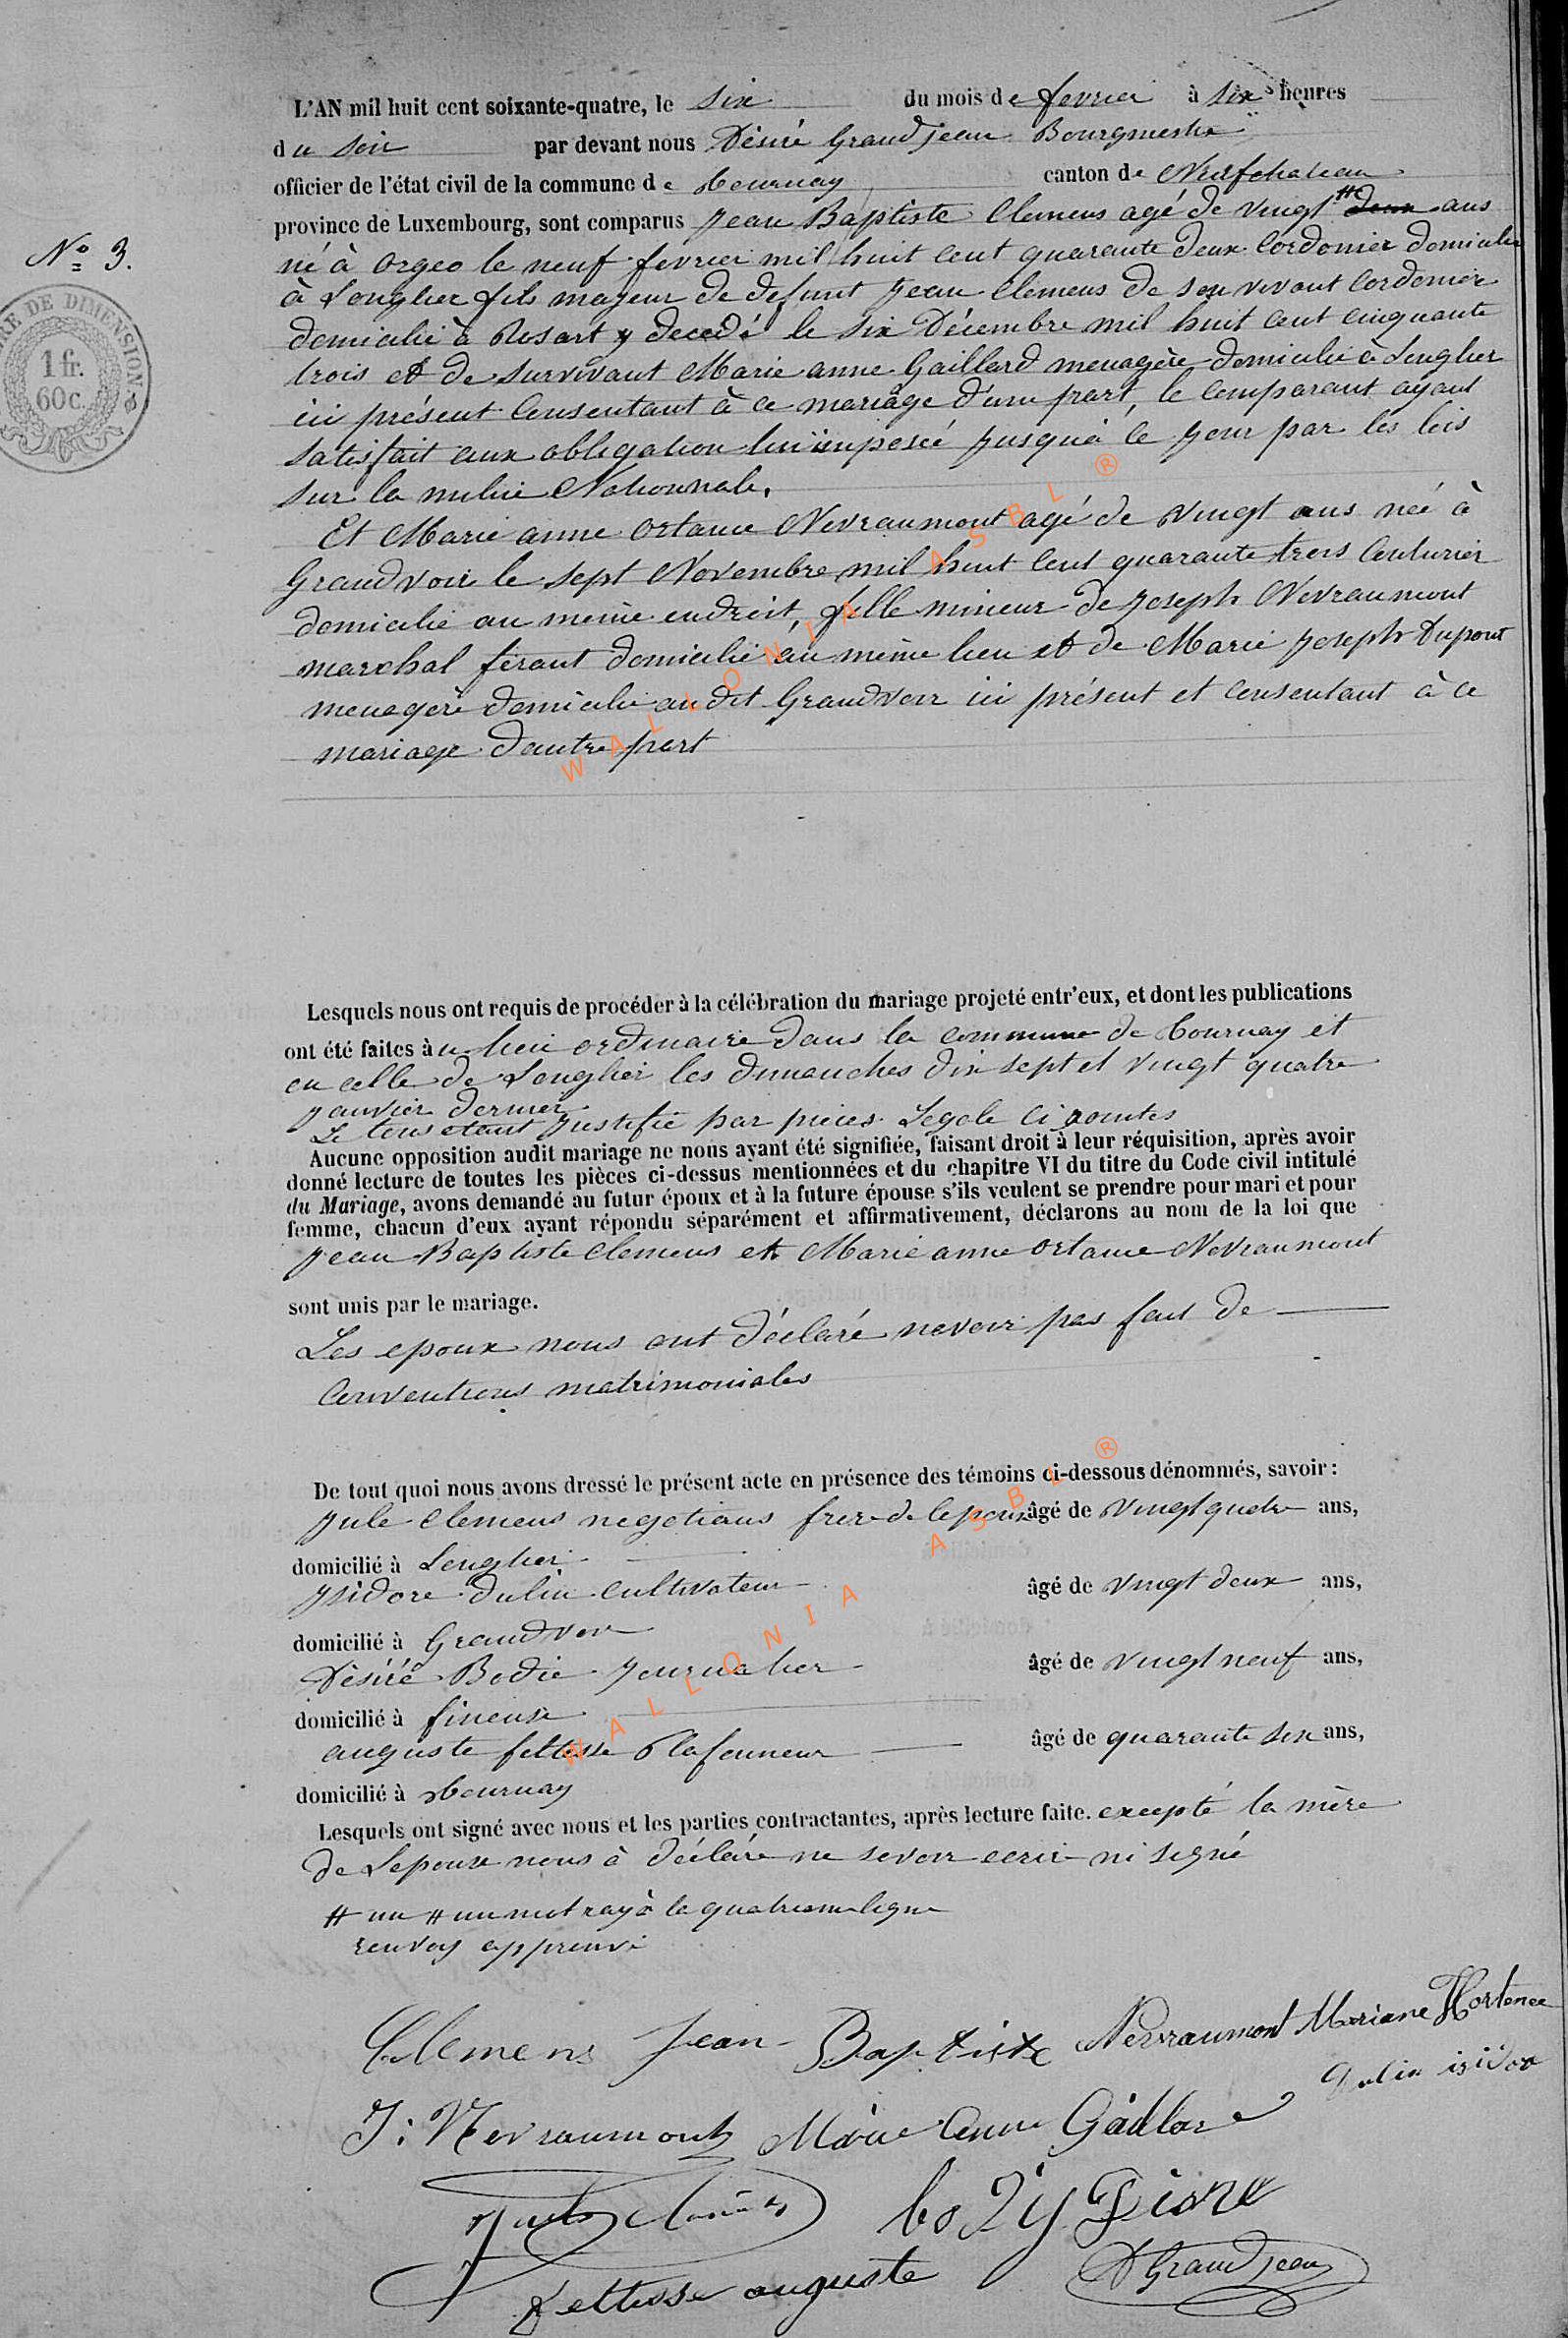 L'AN mil huit cent soixante-quatre, le six du mois de fevrier à six heures
du soir par devant nous Désiré Grandjean Bourgmestre
officier de l'état civil de la commune de tournay canton de Neufchateau
province de Luxembourg, sont comparus Jean Baptiste Clemens agé de vingt # deux ans
né à Orgeo le neuf fevrier mil huit cent quarante deux Cordonier domicilié
N° 3.
à Longlier fils majeur de defunt Jean Clemens de son vivant Cordonier
TIMBRE DE DIMENSION
1 fr.
60c.
domicilié à Rosart y decedé le six Décembre mil huit cent cinquante
trois et de survivant Marie anne Gaillard menagère domicilié à Longlier
ici présent Consentant à ce mariâge d'une part, le Comparant ayant
satisfait aux obligation lui imposéé jusqu'a ce jour par les lois
sur la milice Nationnale.
Et Marie anne Ortance Nevraumont agé de vingt ans née à
Grandvoir le sept Novembre mil huit cent quarante trois Couturier
domicilié au meme endroit, fille mineur de Joseph Nevraumont
marchal férant domicilié au même lieu et de Marie Joseph Dupont
menagère domicilié au dit Grandvoir ici présent et Consentant à ce
mariage d'autre part
WALLONIA ASBL ®
Lesquels nous ont requis de procéder à la célébration du mariage projeté entr'eux, et dont les publications
ont été faites au lieu ordinaire dans la commune de tournay et
en celle de Longlier les dimanches dix sept et vingt quatre
janvier dernier
Le tous etant justifié par pièces Legale Ci jointes
Aucune opposition audit mariage ne nous ayant été signifiée, faisant droit à leur réquisition, après avoir
donné lecture de toutes les pièces ci-dessus mentionnées et du chapitre VI du titre du Code civil intitulé
du Mariage, avons demandé au futur époux et à la future épouse s'ils veulent se prendre pour mari et pour
femme, chacun d'eux ayant répondu séparément et affirmativement, déclarons au nom de la loi que
Jean Baptiste Clemens et Marie anne Ortance Nevraumont
sont unis par le mariage.
Les epoux nous ont déclaré navoir pas fait de
Conventions matrimoniales
De tout quoi nous avons dressé le présent acte en présence des témoins ci-dessous dénommés, savoir :
Jule Clemens negotians frere de lepoux âgé de vingt quatre ans,
domicilié à Longlier
Isidore Dulin Cultivateur âgé de vingt deux ans,
domicilié à Grandvoir
Désiré Bodie Journalier âgé de vingt neuf ans,
domicilié à fineuse
auguste fettesse Plafonneur âgé de quarante six ans,
domicilié à tournay
WALLONIA ASBL ®
Lesquels ont signé avec nous et les parties contractantes, après lecture faite. excepté la mère
de Lepouse nous à déclaré ne savoir ecrire ni signé
# un # un mot rayé à la quatrieme ligne
renvoy approuvé
Clemens Jean-Baptiste Nevraumont Mariane Hortence
Dulin isidor
J: Nevraumont Marie Anne Gaillard
Jules Clemens
Fettesse auguste DGrandjean